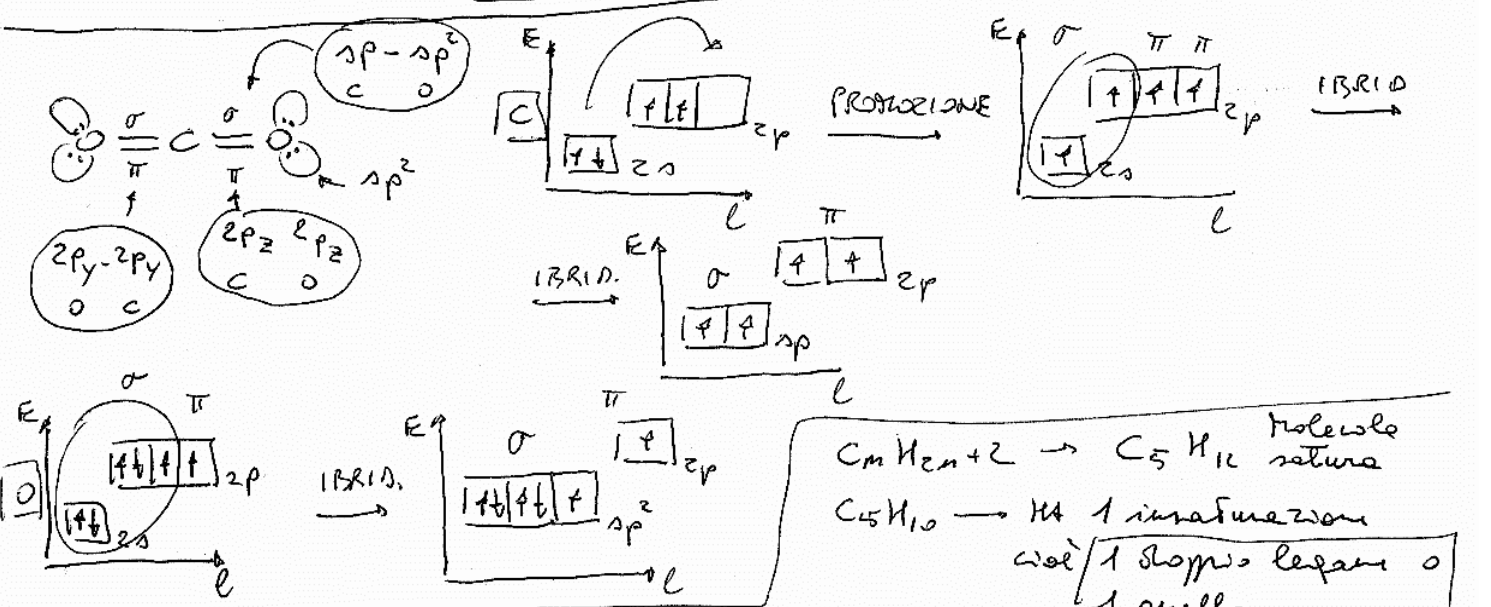 sp - sp²
C O
σ σ
O = C = O
π π
sp²
2py - 2py
O C
2pz 2pz
C O
C
E
2s
2p
l
PROMOZIONE
E
σ π π
2s
2p
l
IBRID
IBRID.
E
σ
π
sp
2p
l
O
E
σ
π
2s
2p
l
IBRID.
E
σ
π
sp²
2p
l
CnH2n+2 → C5H12 Molecola
satura
C5H10 → HA 1 insaturazione
cioè 1 doppio legame o
1 anello